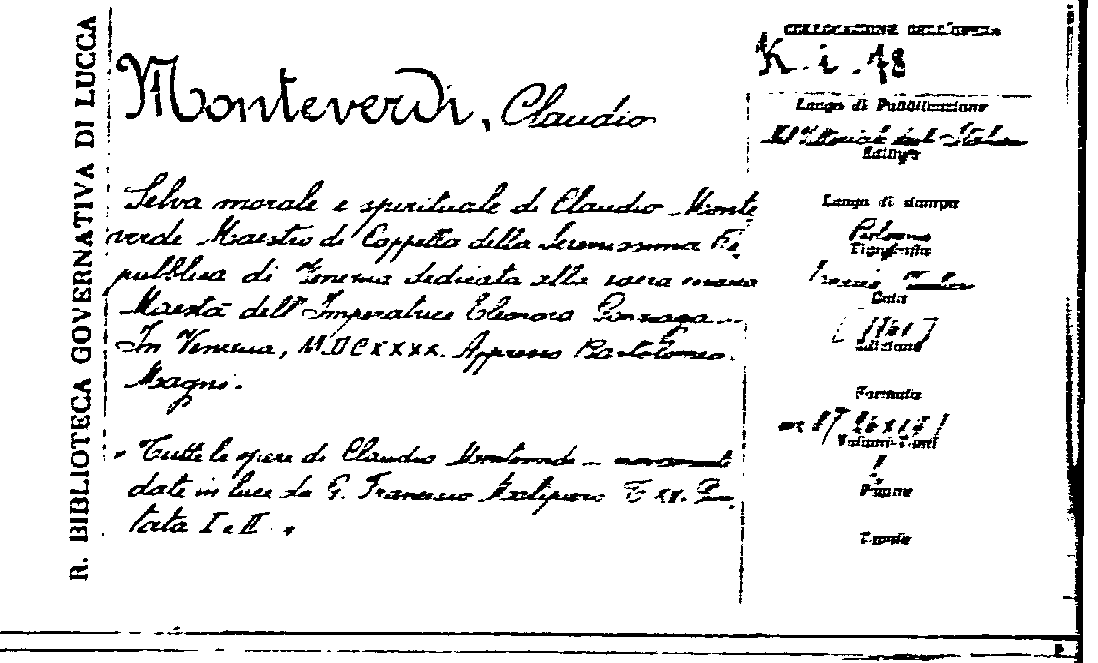 R. BIBLIOTECA GOVERNATIVA DI LUCCA
Monteverdi, Claudio
Selva morale e spirituale di Claudio Monte
verde Maestro di Cappella della Serenissima Re
pubblica di Venezia dedicata alla sacra
Maestà dell'Imperatrice Eleonora Gonzaga
In Venezia, MDCXXXX. Appresso Bartolomeo
Magni.
Tutte le opere di Claudio Monteverdi - novamente
date in luce da G. Francesco Malipiero T XV. Pun
tata I e II.
COLLOCAZIONE DELL'OPERA
K. i. 78
Luogo di Pubblicazione
Il Vittoriale degli Italiani
Stampa
Luogo di stampa
Bologna
Tipografia
Data
Edizione
Formato
Volumi-Tomi
Pagine
Tavole